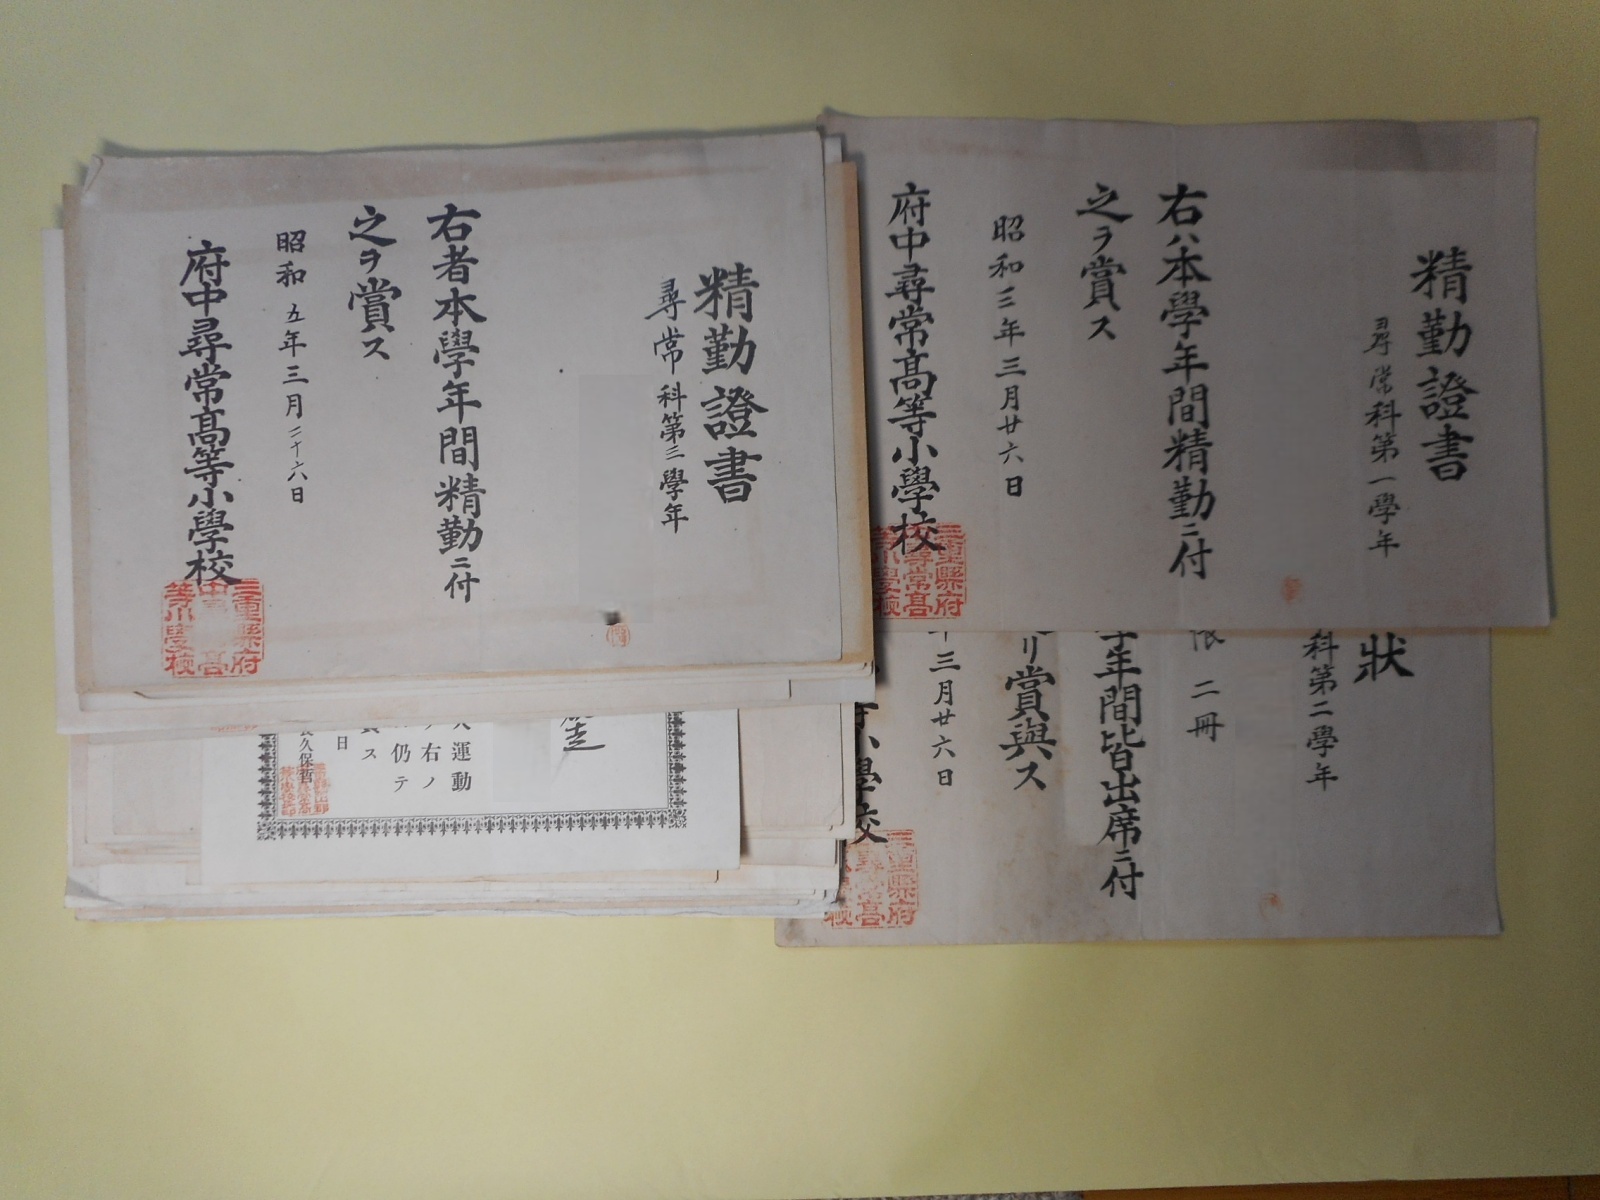 精勤證書
尋常科第一學年
右ハ本學年間精勤ニ付
之ヲ賞ス
昭和三年三月廿六日
府中尋常高等小學校
三重縣府
精勤證書
尋常科第三學年
右者本學年間精勤ニ付
之ヲ賞ス
昭和五年三月二十六日
府中尋常高等小學校
三重縣府
狀
科第二學年
二冊
年間皆出席ニ付
リ賞與ス
三月廿六日
學校
三重縣府
運動
右ノ
仍テ
ス
日
久保哲